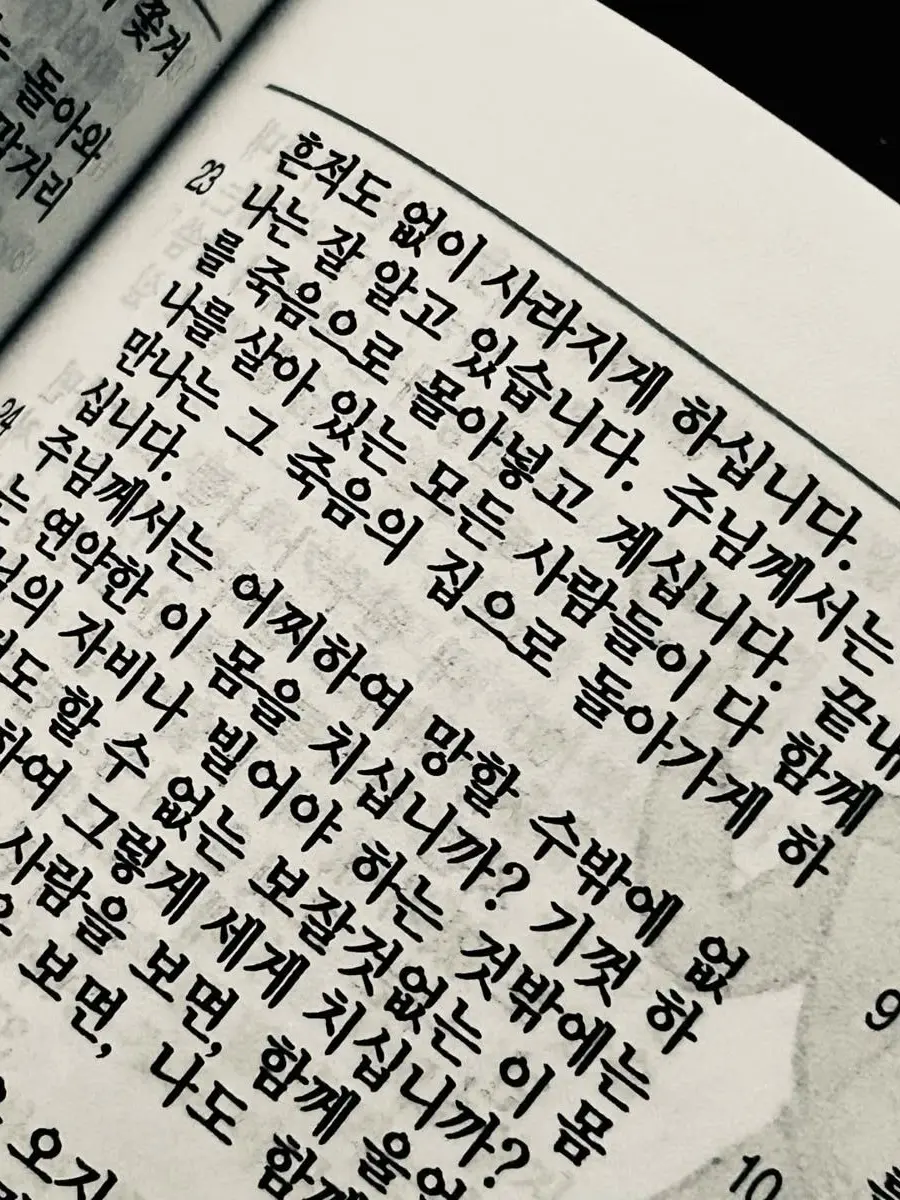 쫓겨
돌아와
막거리
흔적도 없이 사라지게 하십니다.
23 나는 잘 알고 있습니다. 주님께서는
를 죽음으로 몰아넣고 계십니다. 끝내
나를 살아 있는 모든 사람들이 다 함께
만나는 그 죽음의 집으로 돌아가게 하
십니다.
24 주님께서는 어찌하여 망할 수밖에 없
는 연약한 이 몸을 치십니까? 기껏 하
의 자비나 빌어야 하는 것밖에는
도 할 수 없는 보잘것없는 이 몸
하여 그렇게 세게 치십니까?
사람을 보면, 함께 울
보면, 나도 함께
오지
9
10